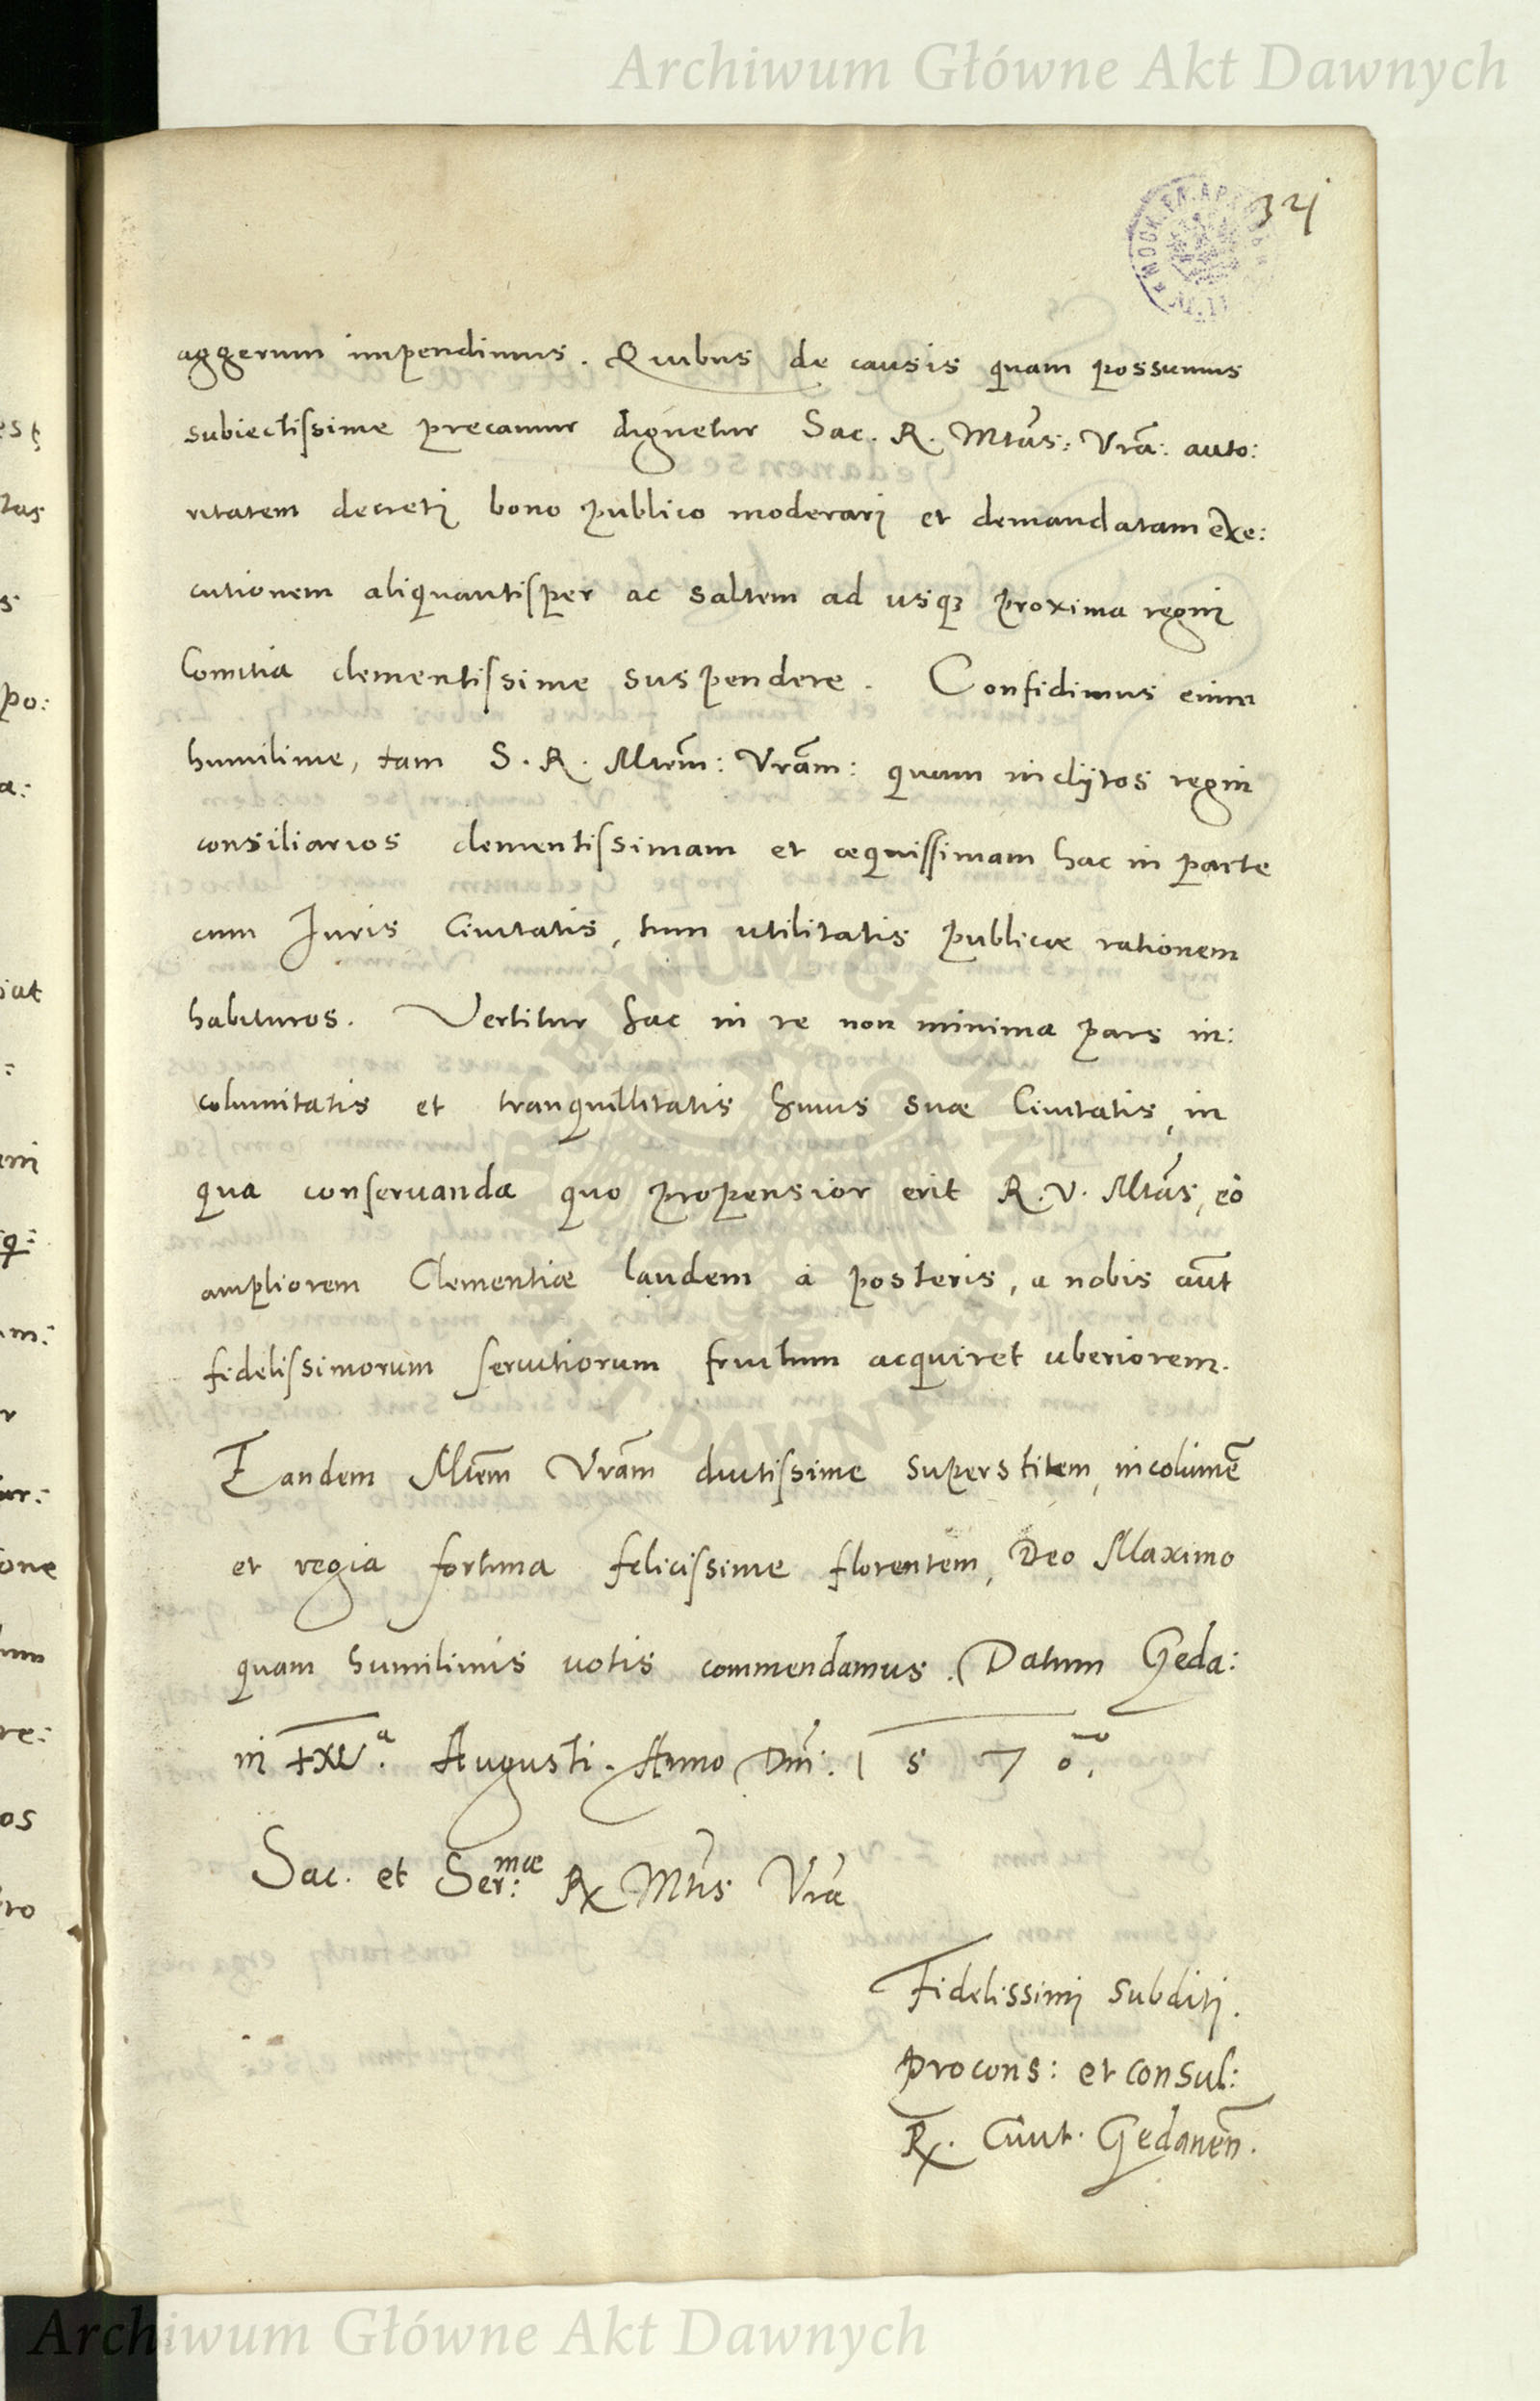 Archiwum Główne Akt Dawnych
321
aggerum impendimus. Quibus de causis quam possumus
subiectissime precamur dignetur Sac. R. Mtas: Vra: auto:
ritatem decretj bono publico moderarj et demandatam exe:
cutionem aliquantisper ac saltem ad usq3 proxima regnj
Comitia clementissime suspendere. Confidimus enim
humilime, tam S. R. Mtem: Vram: quam inclytos regni
consiliarios clementissimam et æquissimam hac in parte
cum Juris Ciuitatis, tum utilitatis publicæ rationem
habituros. Vertitur hac in re non minima pars in:
columitatis et tranquillitatis huius suæ Ciuitatis, in
qua conseruanda quo propensior erit R. V. Mtas, eò
ampliorem Clementiæ laudem à posteris, a nobis aut
fidelissimorum seruitiorum fructum acquiret uberiorem.
Tandem Mtem Vram diutissime superstitem, incolumē
et regia fortuna felicissime florentem, Deo Maximo
quam humilimis votis commendamus. Datum Geda:
ni Augusti. Anno Dni: 1570.
Sac. et Ser:mæ Rx Mtis Vræ
Fidelissimj subditj.
Procons: et consul:
Rx. Ciuit. Gedanen.
Archiwum Główne Akt Dawnych